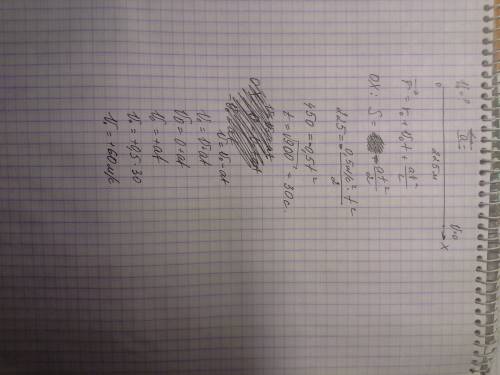 225 м
0 X
r⃗ = r₀ + v₀t + at²/2
OX: S = at²/2
225 = 0,5 м/с² · t² / 2
450 = 0,5t²
t = √900 = 30 с.
v = v₀ - at
v₀ = v₀ at
v₀ = 0 + at
v₀ = +at
v₀ = +0,5 · 30